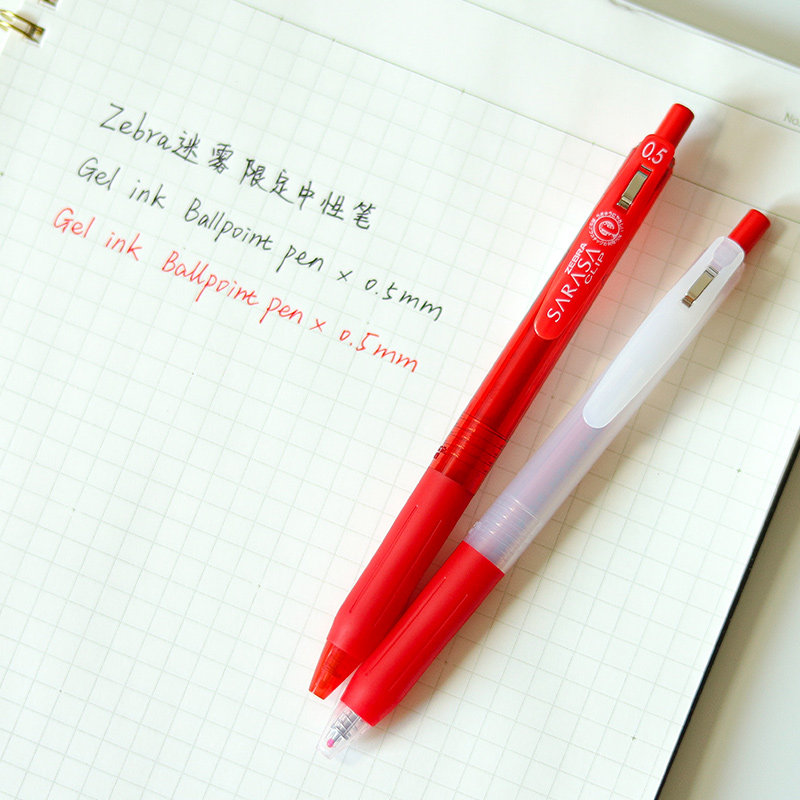 Zebra迷雾限定中性笔
Gel ink Ballpoint pen x 0.5mm
Gel ink Ballpoint pen x 0.5mm
0.5
ZEBRA
SARASA
CLIP
No.